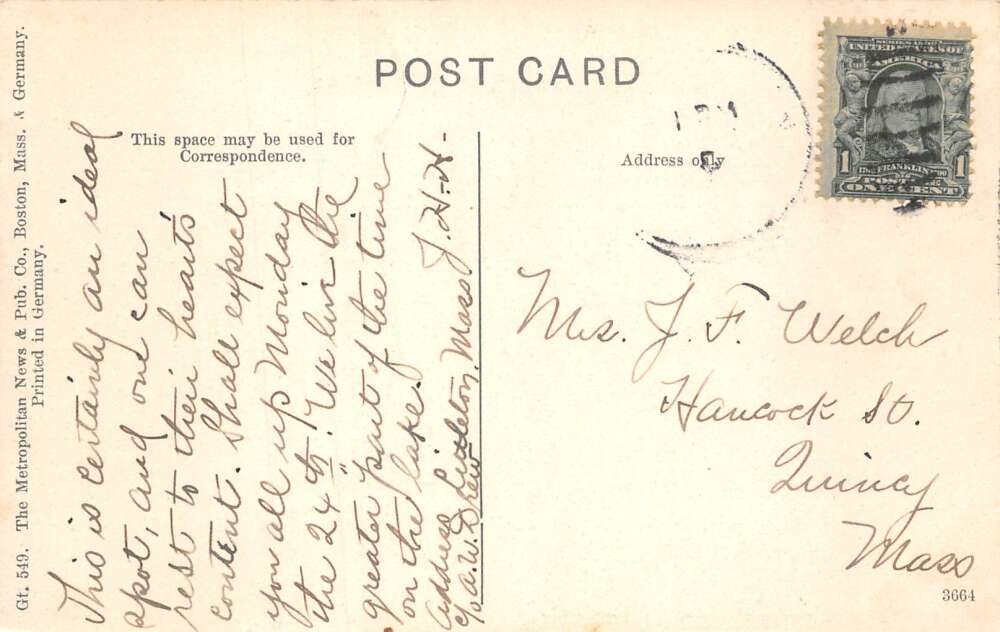 POST CARD
This space may be used for
Correspondence.
Address only
SERIES 1902
UNITED STATES OF
AMERICA
1 FRANKLIN 1
POSTAGE
ONE CENT
This is certainly an ideal
spot, and one can
rest to their heart's
content. Shall expect
you all up Monday
the 24th. We live the
greater part of the time
on the lake. J. H. H-
Address Littleton, Mass
c/o A. W. Drew
Mrs. J. F. Welch
Hancock St.
Quincy
Mass
3664
Gt. 549. The Metropolitan News & Pub. Co., Boston, Mass. & Germany.
Printed in Germany.